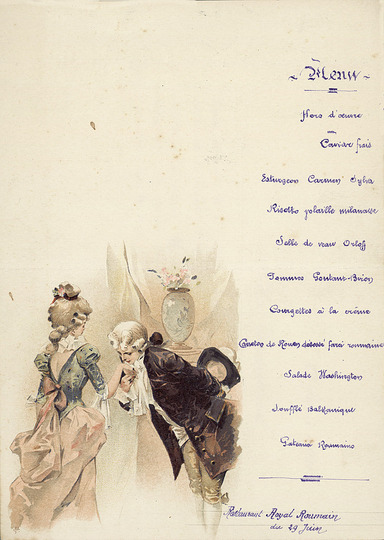 Menu
Hors d'œuvre
Caviar frais
Esturgeon Carmen Sylva
Risotto volaille milanaise
Selle de veau Orloff
Pommes Pontant-Brion
Courgettes à la crème
Caneton de Rouen désossé farci roumaine
Salade Washington
Soufflé Balkanique
Gateaux Roumains
Restaurant Royal Roumain
du 29 Juin